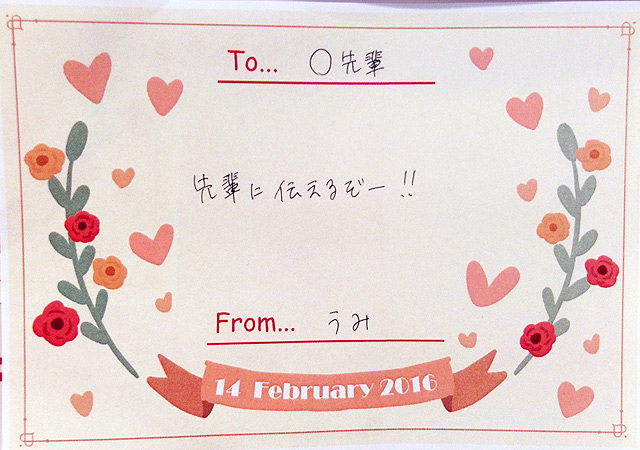 To... ○先輩
先輩に伝えるぞー!!
From... うみ
14 February 2016